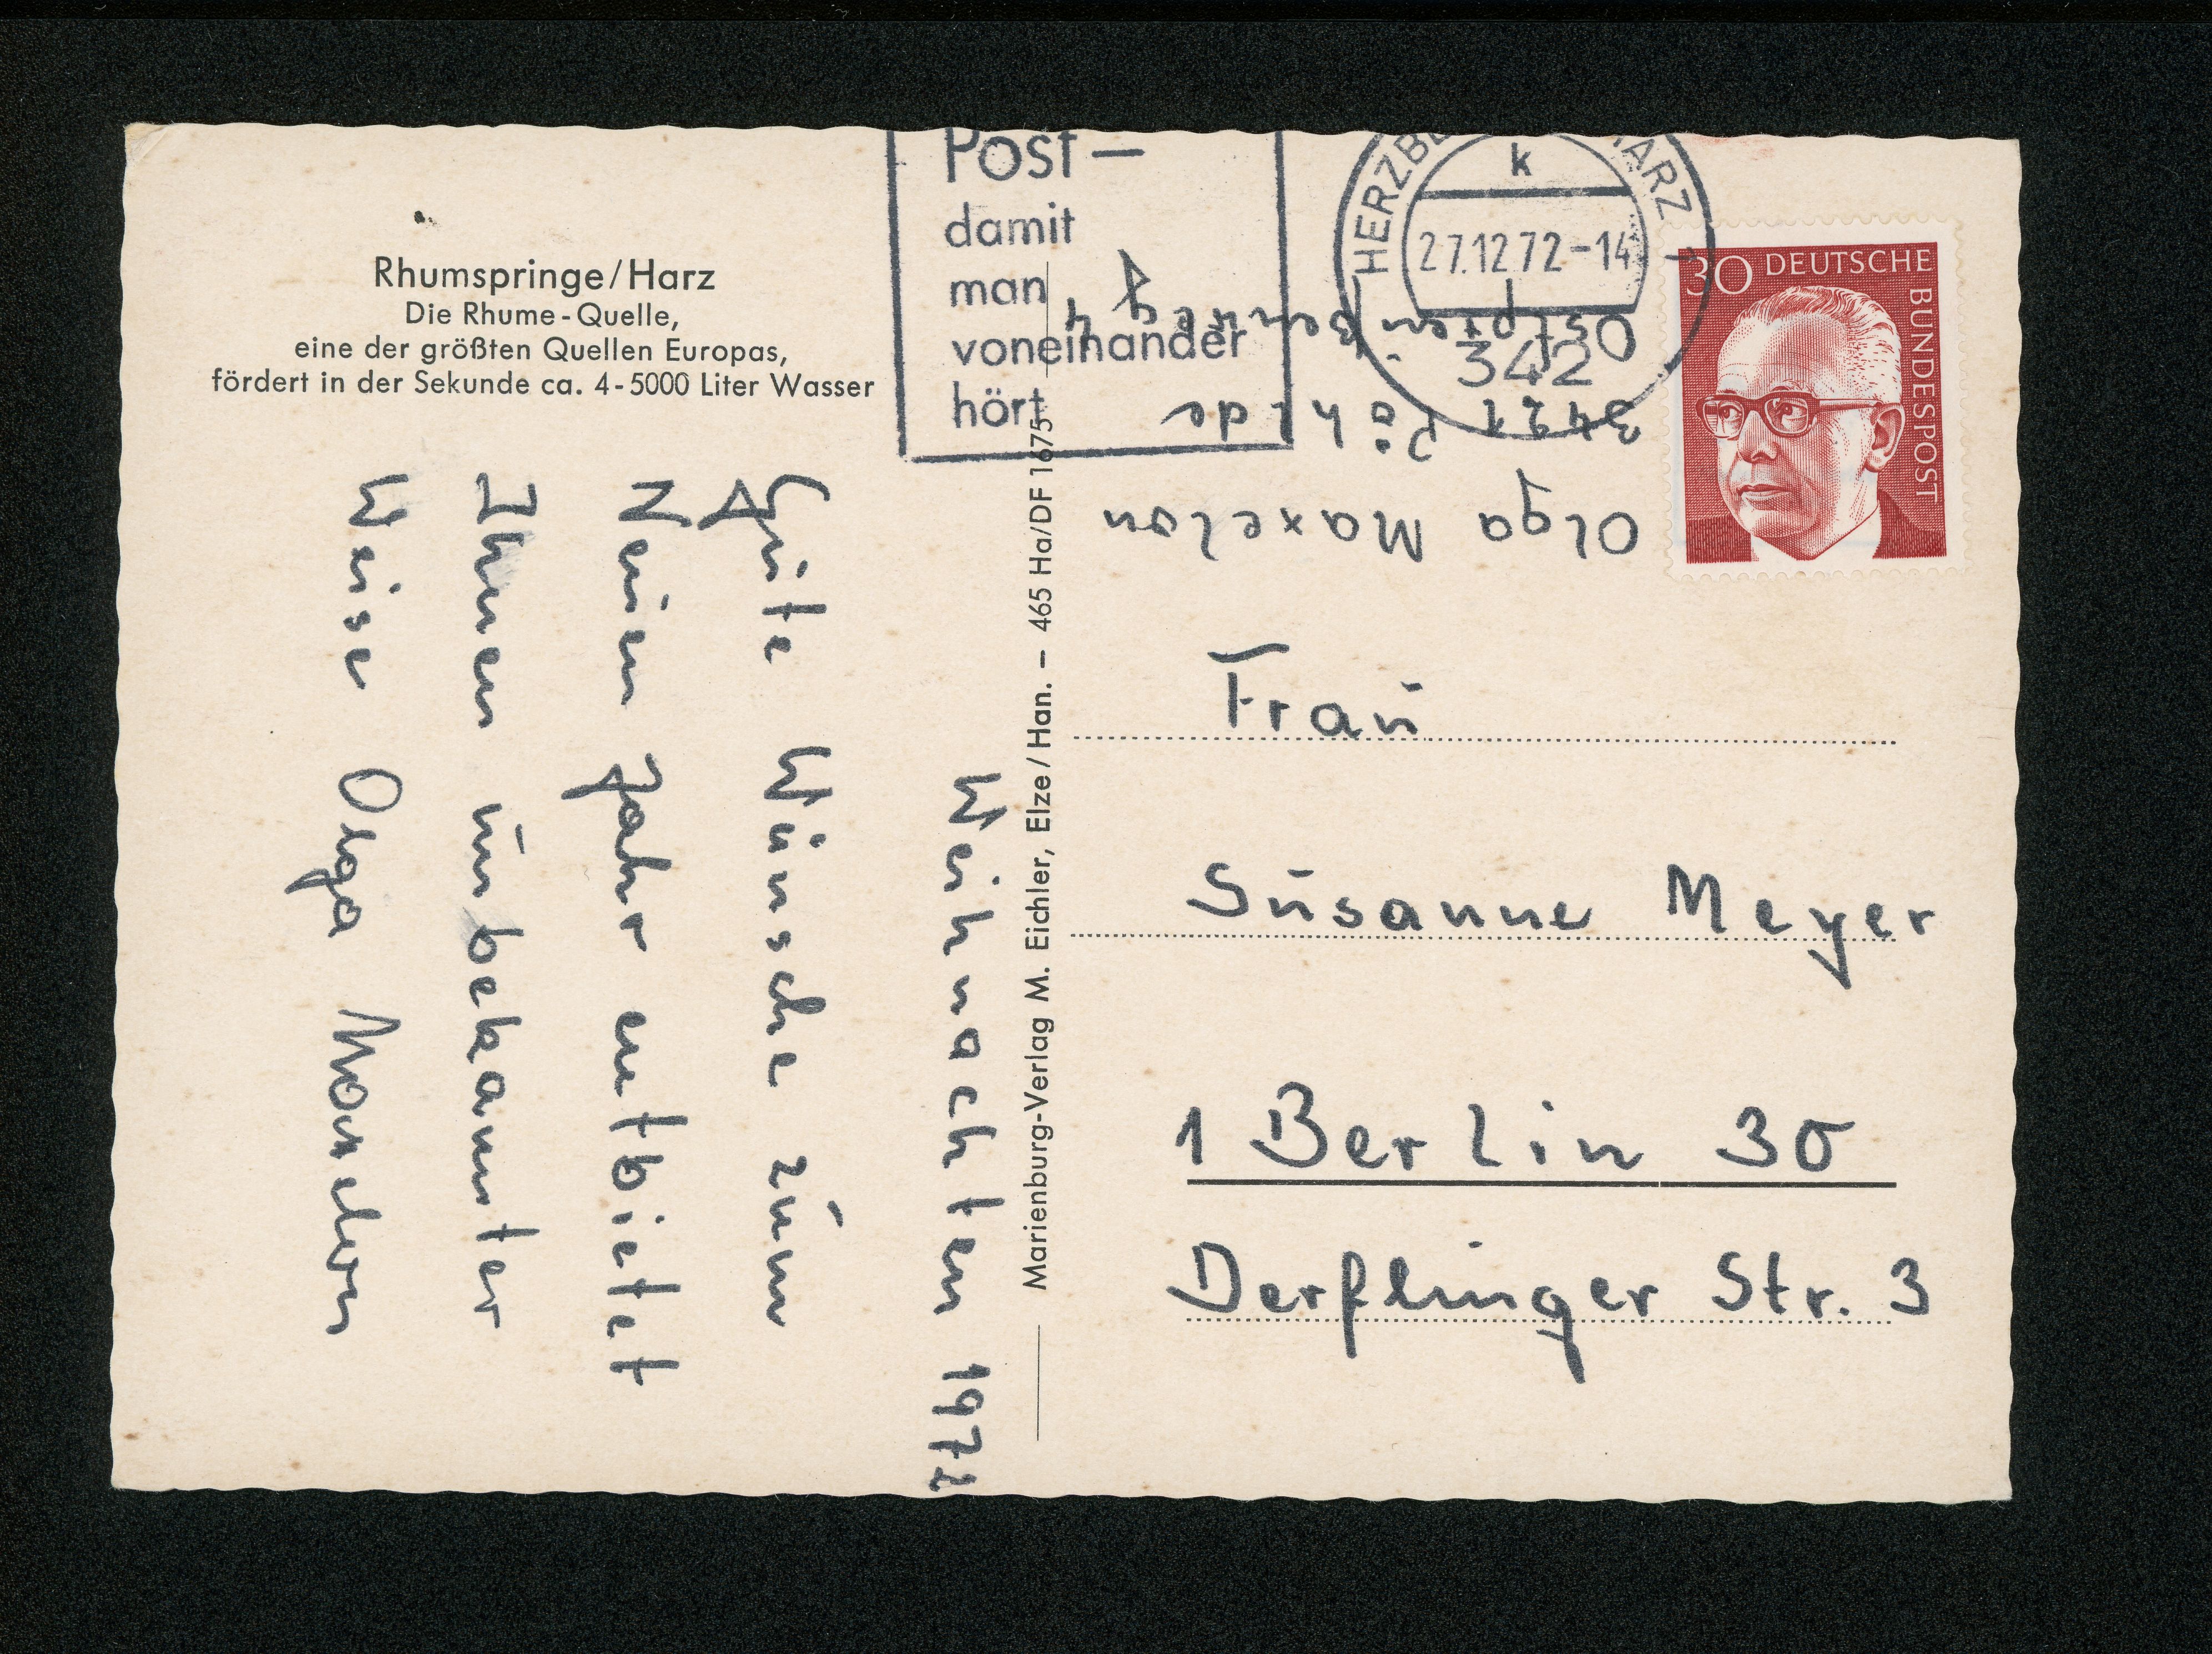 Rhumspringe/Harz
Die Rhume-Quelle,
eine der größten Quellen Europas,
fördert in der Sekunde ca. 4-5000 Liter Wasser
Weihnachten 1972
Gute Wünsche zum
Neuen Jahr entbietet
Ihnen unbekannter
Weise Olga Maxelon
Marienburg-Verlag M. Eichler, Elze/Han. – 465 Ha/DF 1675
Post –
damit
man
voneinander
hört
HERZB HARZ 1
k
27.12.72-14
342
30 DEUTSCHE BUNDESPOST
Olga Maxelon
3421 Pöhlde
Frau
Susanne Meyer
1 Berlin 30
Derflinger Str. 3